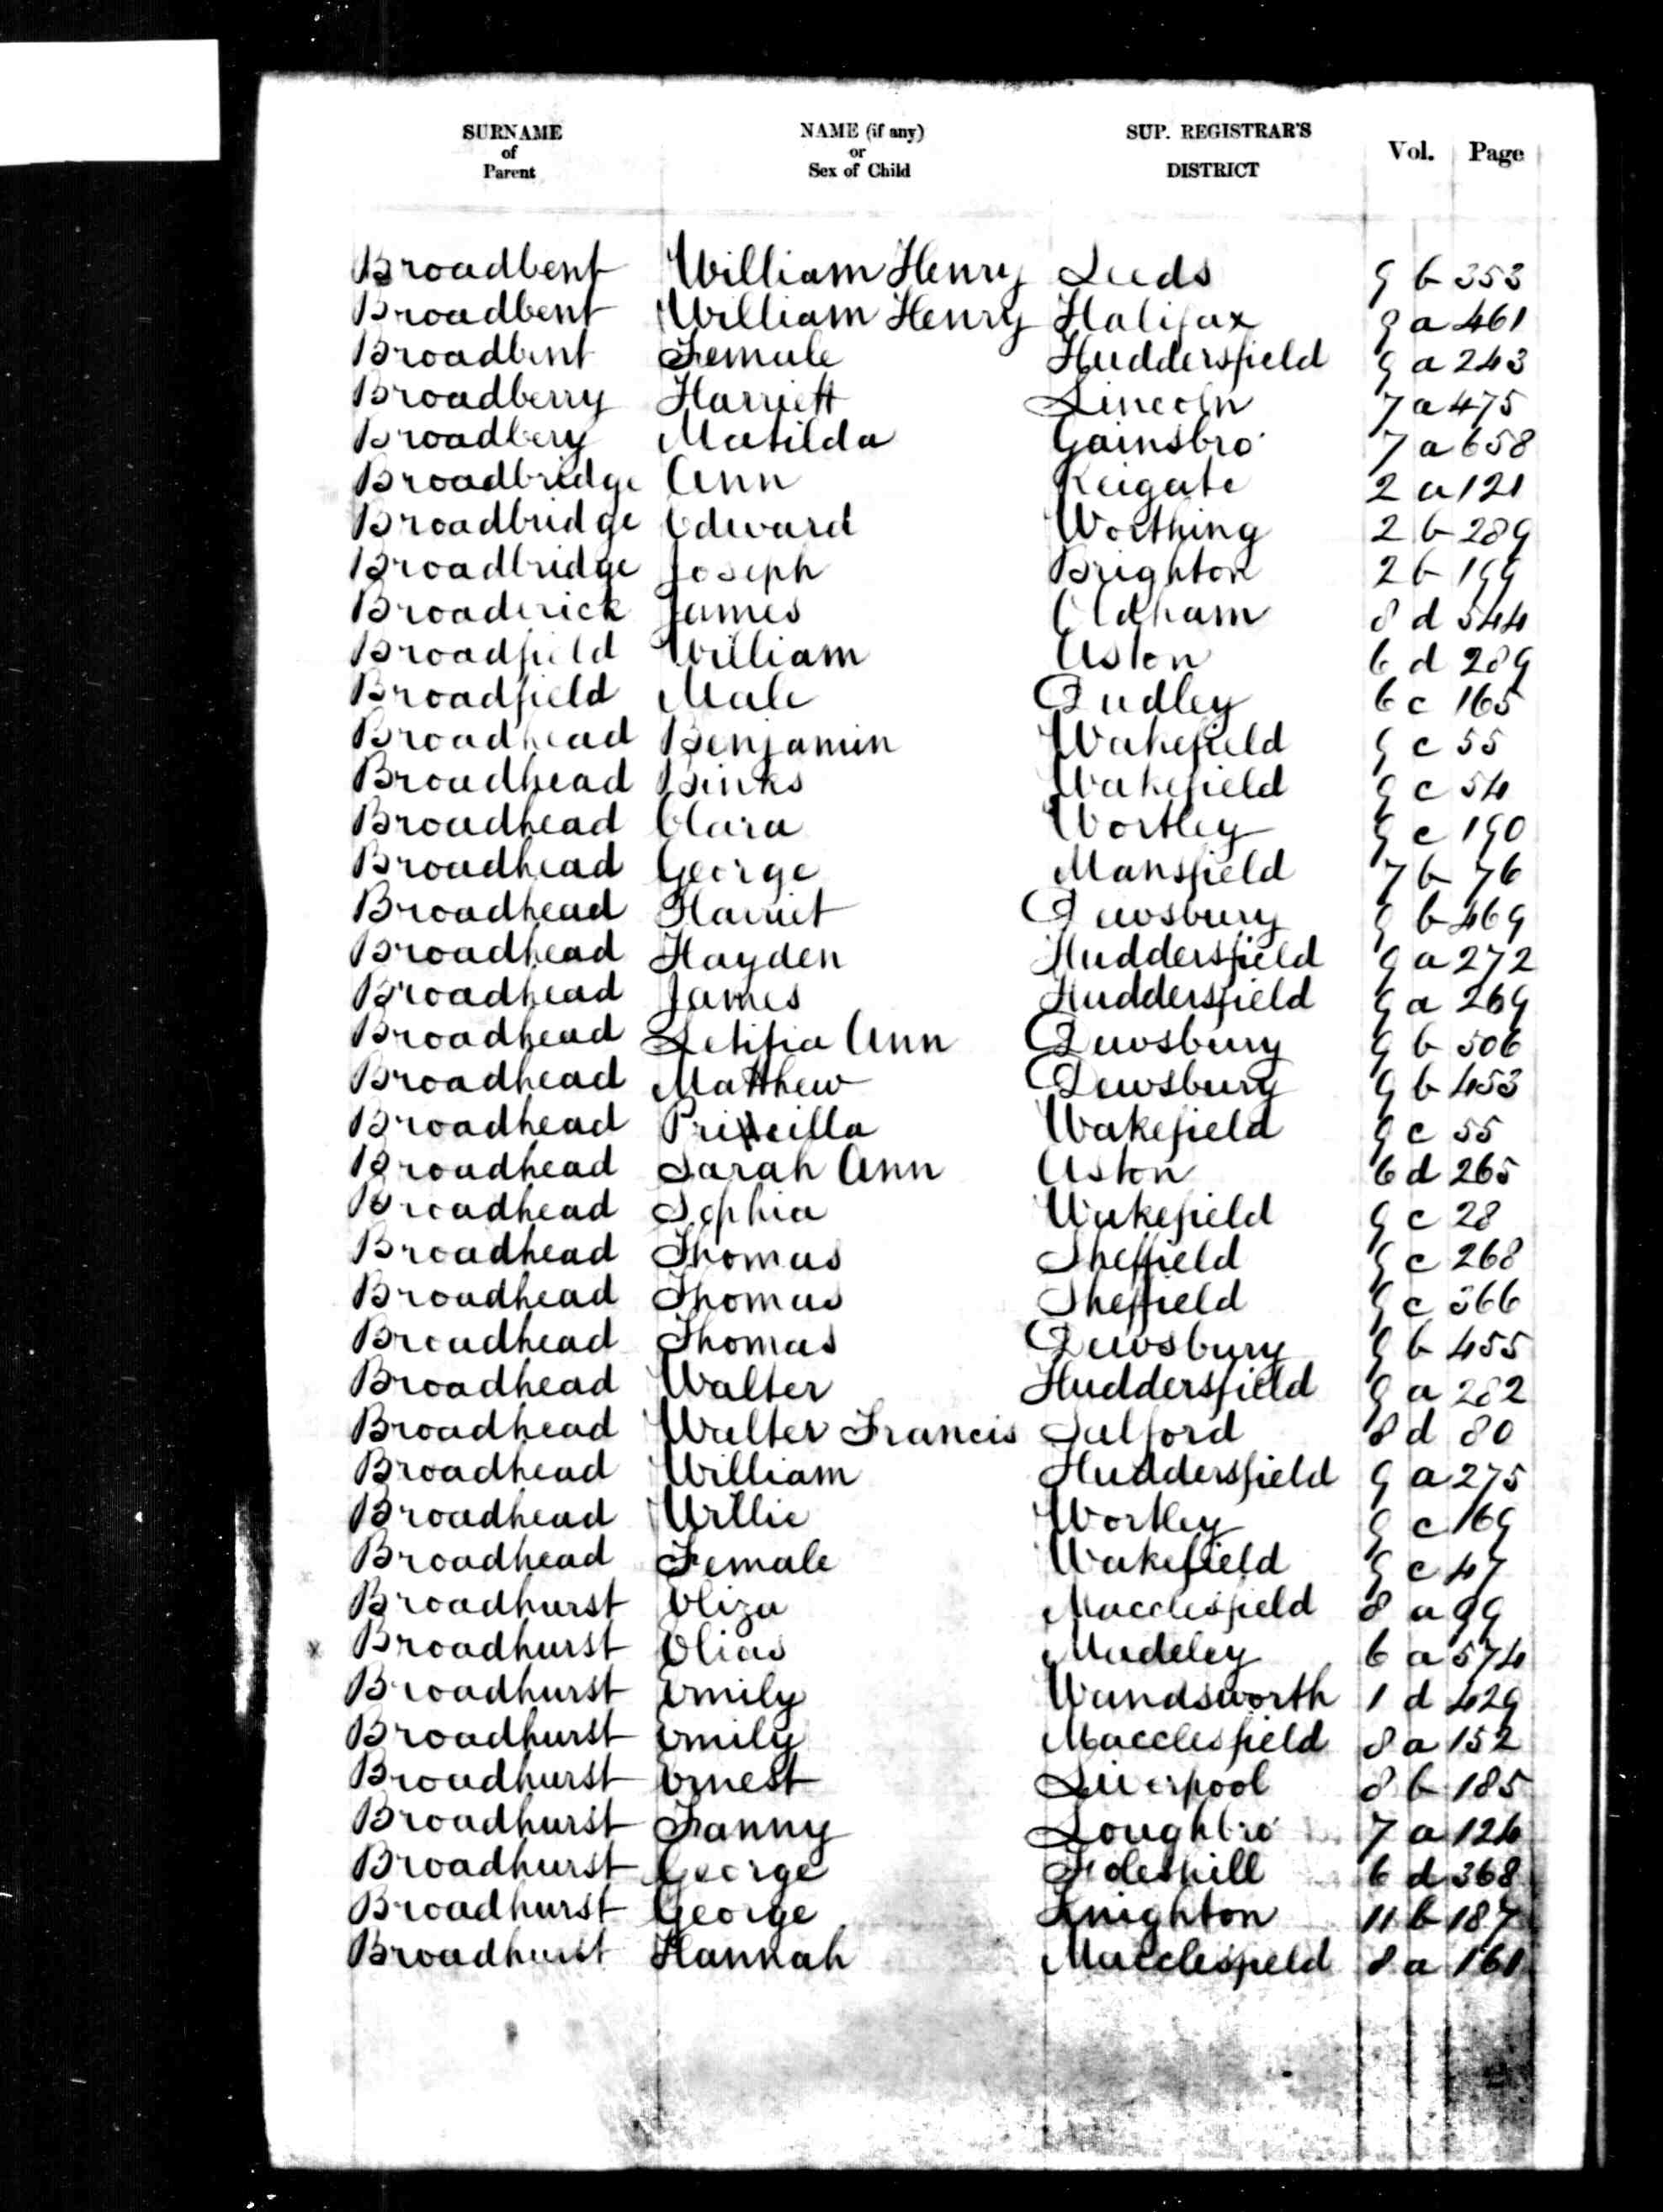 SURNAME of Parent NAME (if any) or Sex of Child SUP. REGISTRAR'S DISTRICT Vol. Page
Broadbent William Henry Leeds 9 b 353
Broadbent William Henry Halifax 9 a 461
Broadbent Female Huddersfield 9 a 243
Broadberry Harriett Lincoln 7 a 475
Broadbery Matilda Gainsbro' 7 a 658
Broadbridge Ann Reigate 2 a 121
Broadbridge Edward Worthing 2 b 289
Broadbridge Joseph Brighton 2 b 199
Broaderick James Oldham 8 d 544
Broadfield William Aston 6 d 289
Broadfield Male Dudley 6 c 165
Broadhead Benjamin Wakefield 9 c 55
Broadhead Binks Wakefield 9 c 54
Broadhead Clara Wortley 9 c 190
Broadhead George Mansfield 7 b 76
Broadhead Harriet Dewsbury 9 b 469
Broadhead Hayden Huddersfield 9 a 272
Broadhead James Huddersfield 9 a 269
Broadhead Letitia Ann Dewsbury 9 b 506
Broadhead Matthew Dewsbury 9 b 453
Broadhead Priscilla Wakefield 9 c 55
Broadhead Sarah Ann Aston 6 d 265
Broadhead Sophia Wakefield 9 c 28
Broadhead Thomas Sheffield 9 c 268
Broadhead Thomas Sheffield 9 c 366
Broadhead Thomas Dewsbury 9 b 455
Broadhead Walter Huddersfield 9 a 282
Broadhead Walter Francis Salford 8 d 80
Broadhead William Huddersfield 9 a 275
Broadhead Willie Wortley 9 c 169
Broadhead Female Wakefield 9 c 47
Broadhurst Eliza Macclesfield 8 a 99
Broadhurst Elias Madeley 6 a 574
Broadhurst Emily Wandsworth 1 d 429
Broadhurst Emily Macclesfield 8 a 152
Broadhurst Ernest Liverpool 8 b 185
Broadhurst Fanny Loughbro' 7 a 126
Broadhurst George Foleshill 6 d 368
Broadhurst George Knighton 11 b 187
Broadhurst Hannah Macclesfield 8 a 161